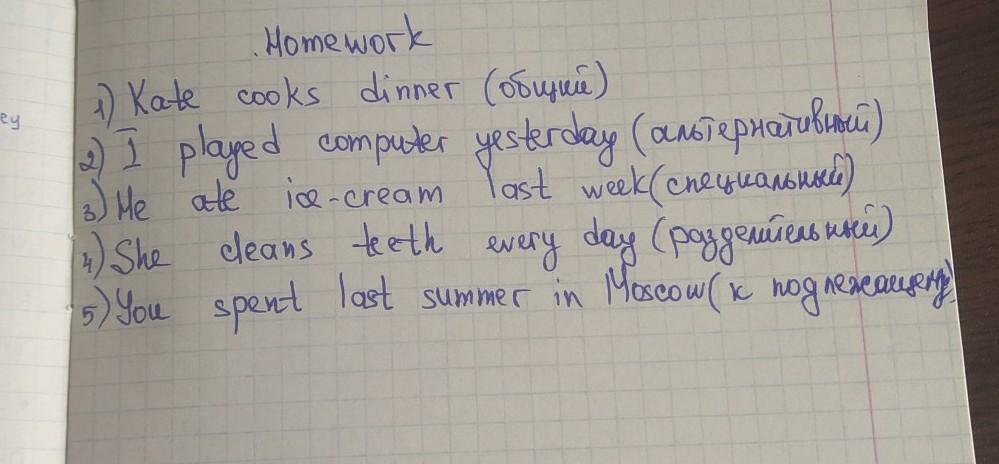 Homework
1) Kate cooks dinner (общий)
ey
2) I played computer yesterday (альтернативный)
3) He ate ice-cream last week (специальный)
4) She cleans teeth every day (разделительный)
5) You spent last summer in Moscow (к подлежащему)